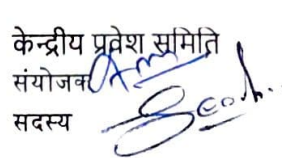 केन्द्रीय प्रवेश समिति
संयोजक
सदस्य